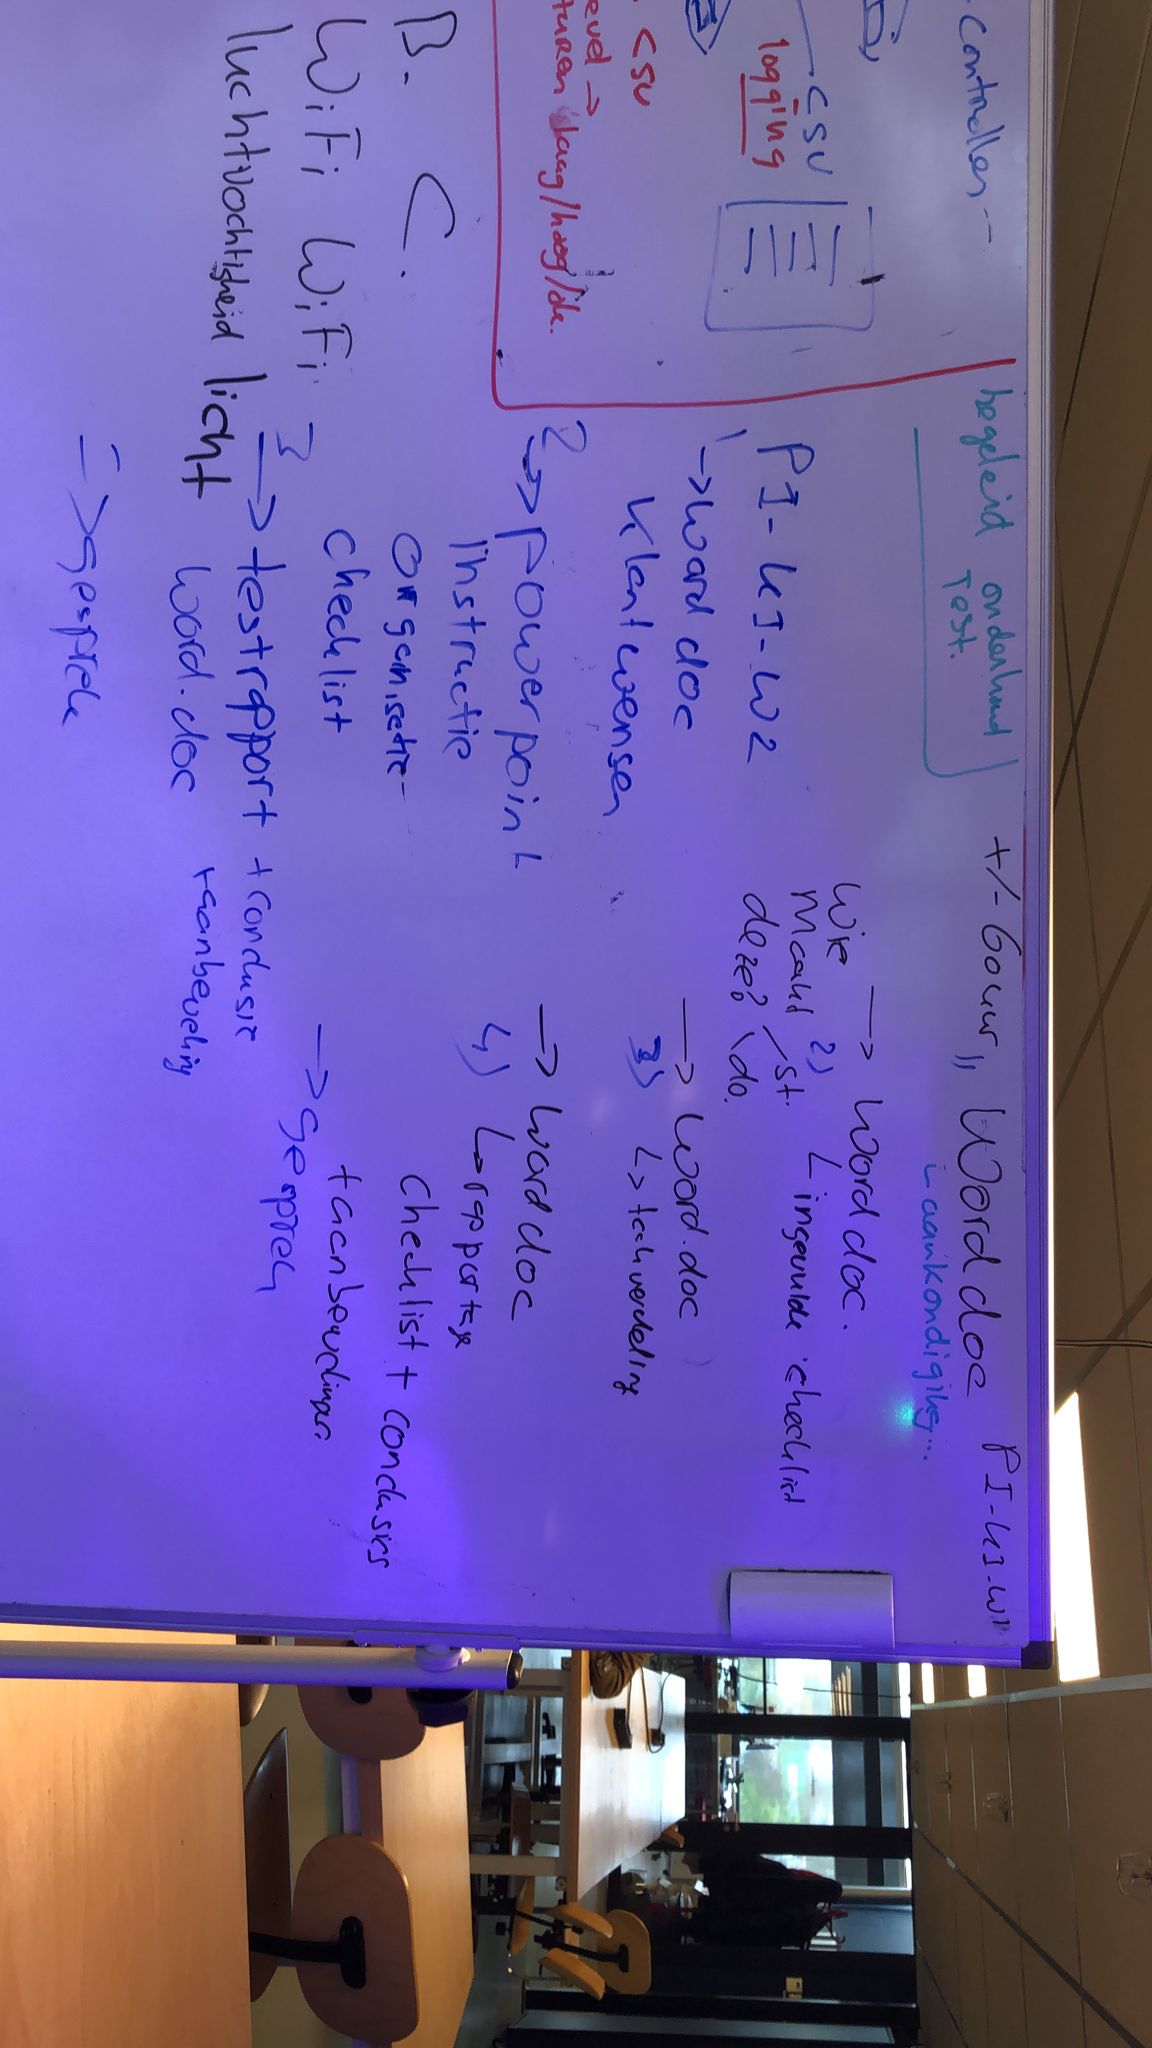 controller -
CSV
logging
CSV
laag/hoog/
B. C.
WiFi WiFi
luchtvochtigheid licht
begeleid onderhoud
Test.
PI-K1-W2
1 -> Word doc
Klantwensen
2 -> powerpoint
instructie
organisatie-
checklist
3 -> testrapport + conclusie
word.doc + aanbeveling
=> gesprek
+/- 60uur,, Word doc PI-K1-W1
aankondiging...
Wie -> Word doc.
Maakt 2) ingevulde checklist
deze? / st. \ do.
-> Word.doc
3) -> taakverdeling
-> Word doc
4) -> rapportage
checklist + conclusies
+ aanbevelingen
-> Gesprek